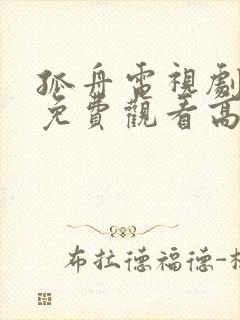 孤舟電視劇
免費觀看高
布拉德福德-